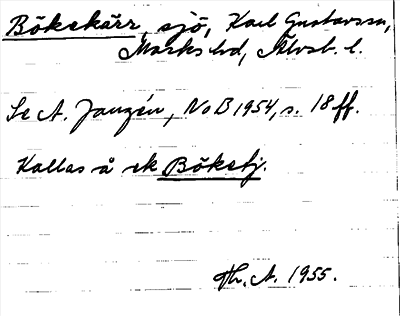 Bökekärr, sjö, Karl Gustavs sn,
Marks hd, Älvsb. l.
Se A. Janzén, NoB 1954, s. 18 ff.
Kallas å ek Bökesj.
Th. A. 1955.